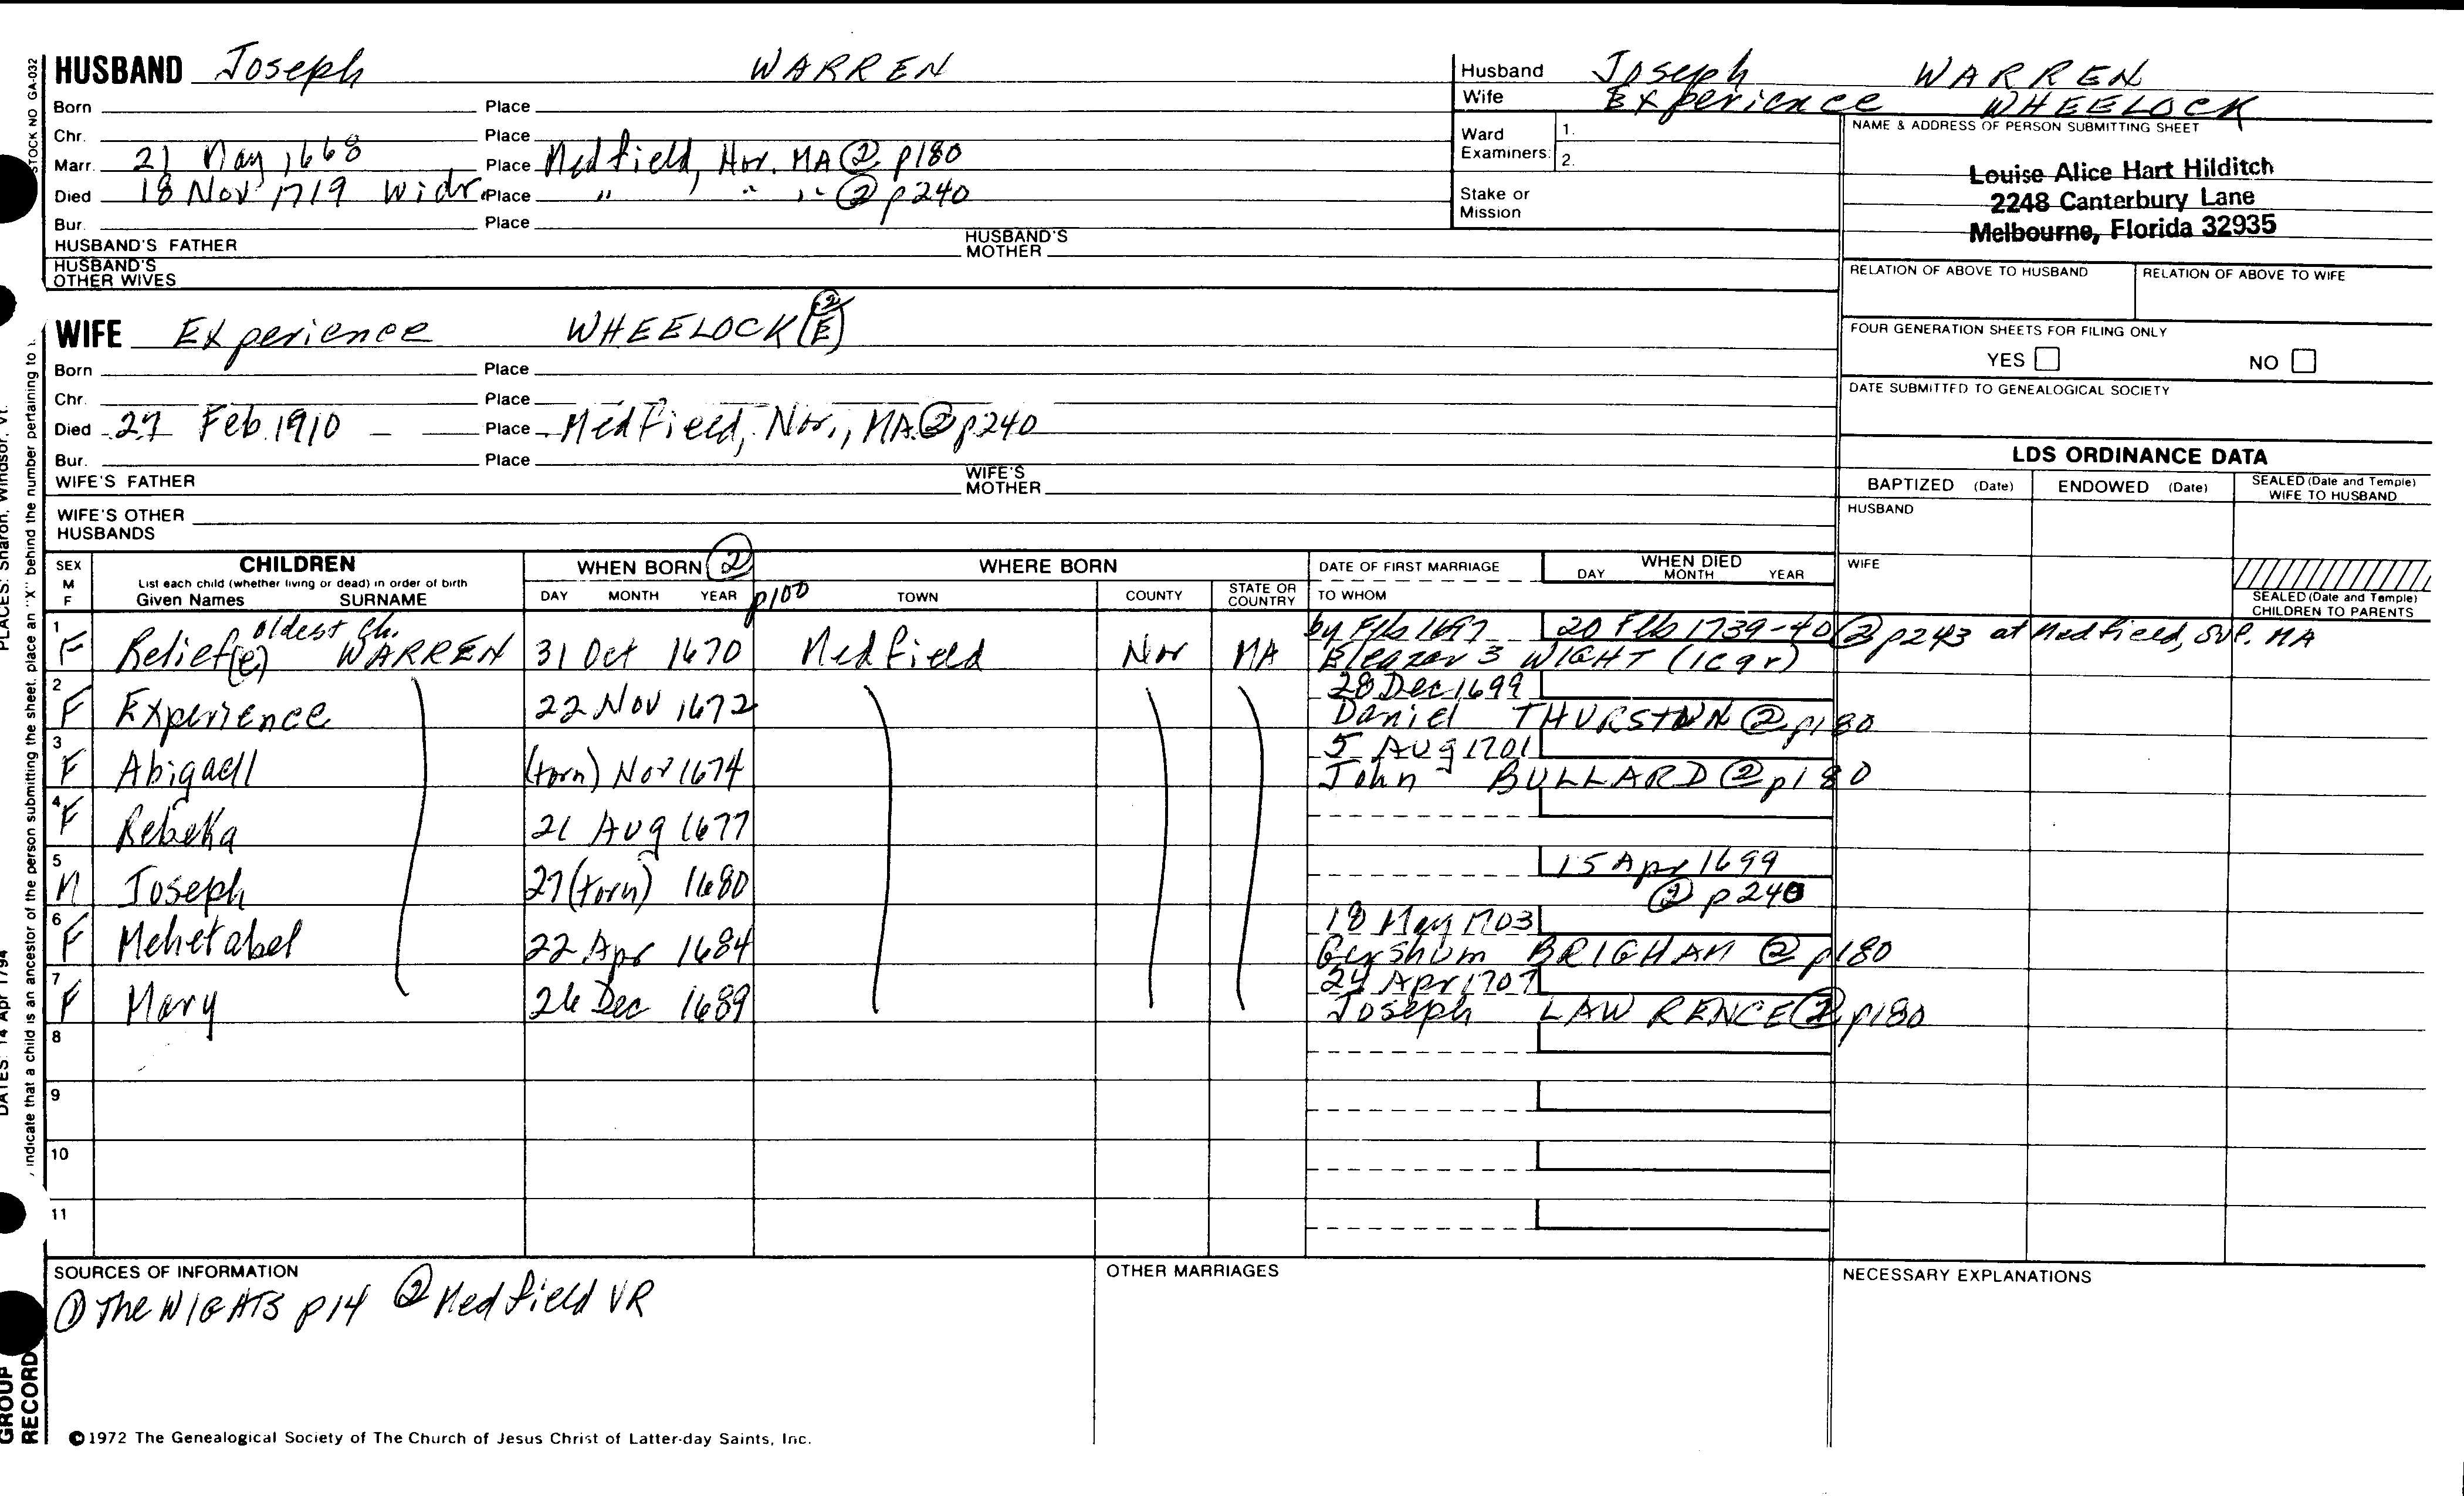 HUSBAND Joseph WARREN
Born Place
Chr. Place
Marr. 21 May 1668 Place Medfield, Nor. MA ② p180
Died 18 Nov 1719 Widr Place " " " ② p240
Bur. Place
HUSBAND'S FATHER HUSBAND'S MOTHER
HUSBAND'S OTHER WIVES
Husband Joseph WARREN
Wife Experience WHEELOCK
Ward Examiners: 1.
2.
Stake or Mission
NAME & ADDRESS OF PERSON SUBMITTING SHEET
Louise Alice Hart Hilditch
2248 Canterbury Lane
Melbourne, Florida 32935
RELATION OF ABOVE TO HUSBAND RELATION OF ABOVE TO WIFE
FOUR GENERATION SHEETS FOR FILING ONLY
YES NO
DATE SUBMITTED TO GENEALOGICAL SOCIETY
WIFE Experience WHEELOCK (E) ②
Born Place
Chr. Place
Died 27 Feb 1910 Place Medfield, Nor., MA ② p240
Bur. Place
WIFE'S FATHER WIFE'S MOTHER
WIFE'S OTHER HUSBANDS
LDS ORDINANCE DATA
BAPTIZED (Date) ENDOWED (Date) SEALED (Date and Temple) WIFE TO HUSBAND
HUSBAND
WIFE
SEALED (Date and Temple) CHILDREN TO PARENTS
SEX M F
CHILDREN
List each child (whether living or dead) in order of birth
Given Names SURNAME
WHEN BORN ② p100
DAY MONTH YEAR
WHERE BORN
TOWN COUNTY STATE OR COUNTRY
DATE OF FIRST MARRIAGE
TO WHOM
WHEN DIED
DAY MONTH YEAR
oldest ch. by Feb 1697 20 Feb 1739-40 ② p243 at Medfield, MA
1 F Relief(e) WARREN 31 Oct 1670 Medfield Nor MA Eleazar 3 WIGHT
28 Dec 1699
2 F Experience 22 Nov 1672 Daniel THURSTON ② p180
5 Aug 1701
3 F Abigaell (torn) Nov 1674 John BULLARD ② p180
4 F Rebeka 21 Aug 1677
15 Apr 1699
5 M Joseph 27 (torn) 1680 ② p240
18 May 1703
6 F Mehetabel 22 Apr 1684 Gershum BRIGHAM ② p180
24 Apr 1707
7 F Mary 26 Dec 1689 Joseph LAWRENCE ② p180
8
9
10
11
SOURCES OF INFORMATION
① The WIGHTS p14 ② Medfield VR
OTHER MARRIAGES
NECESSARY EXPLANATIONS
©1972 The Genealogical Society of The Church of Jesus Christ of Latter-day Saints, Inc.
STOCK NO GA-032
, indicate that a child is an ancestor of the person submitting the sheet, place an "X" behind the number pertaining to
DATES: 14 Apr 1794
PLACES: Sharon, Windsor, Vt.
GROUP RECORD